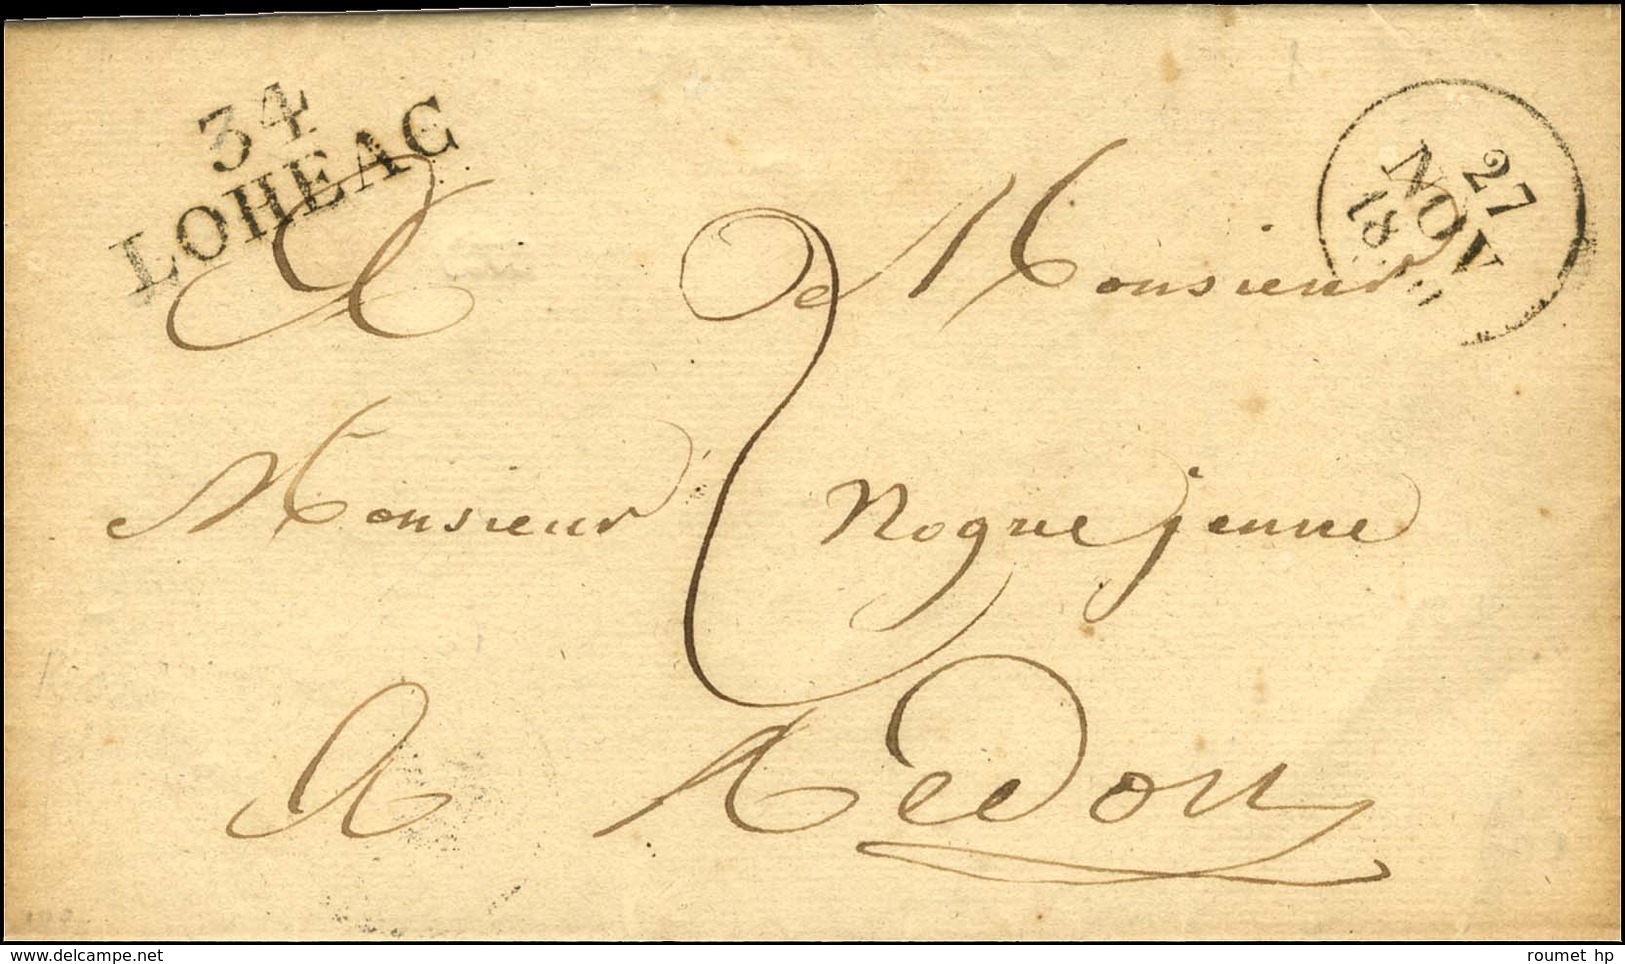 34
LOHEAC
27
NOV
18
A Monsieur
Monsieur Nogue jeune
2
A Redon
delcampe.net
roumet hp